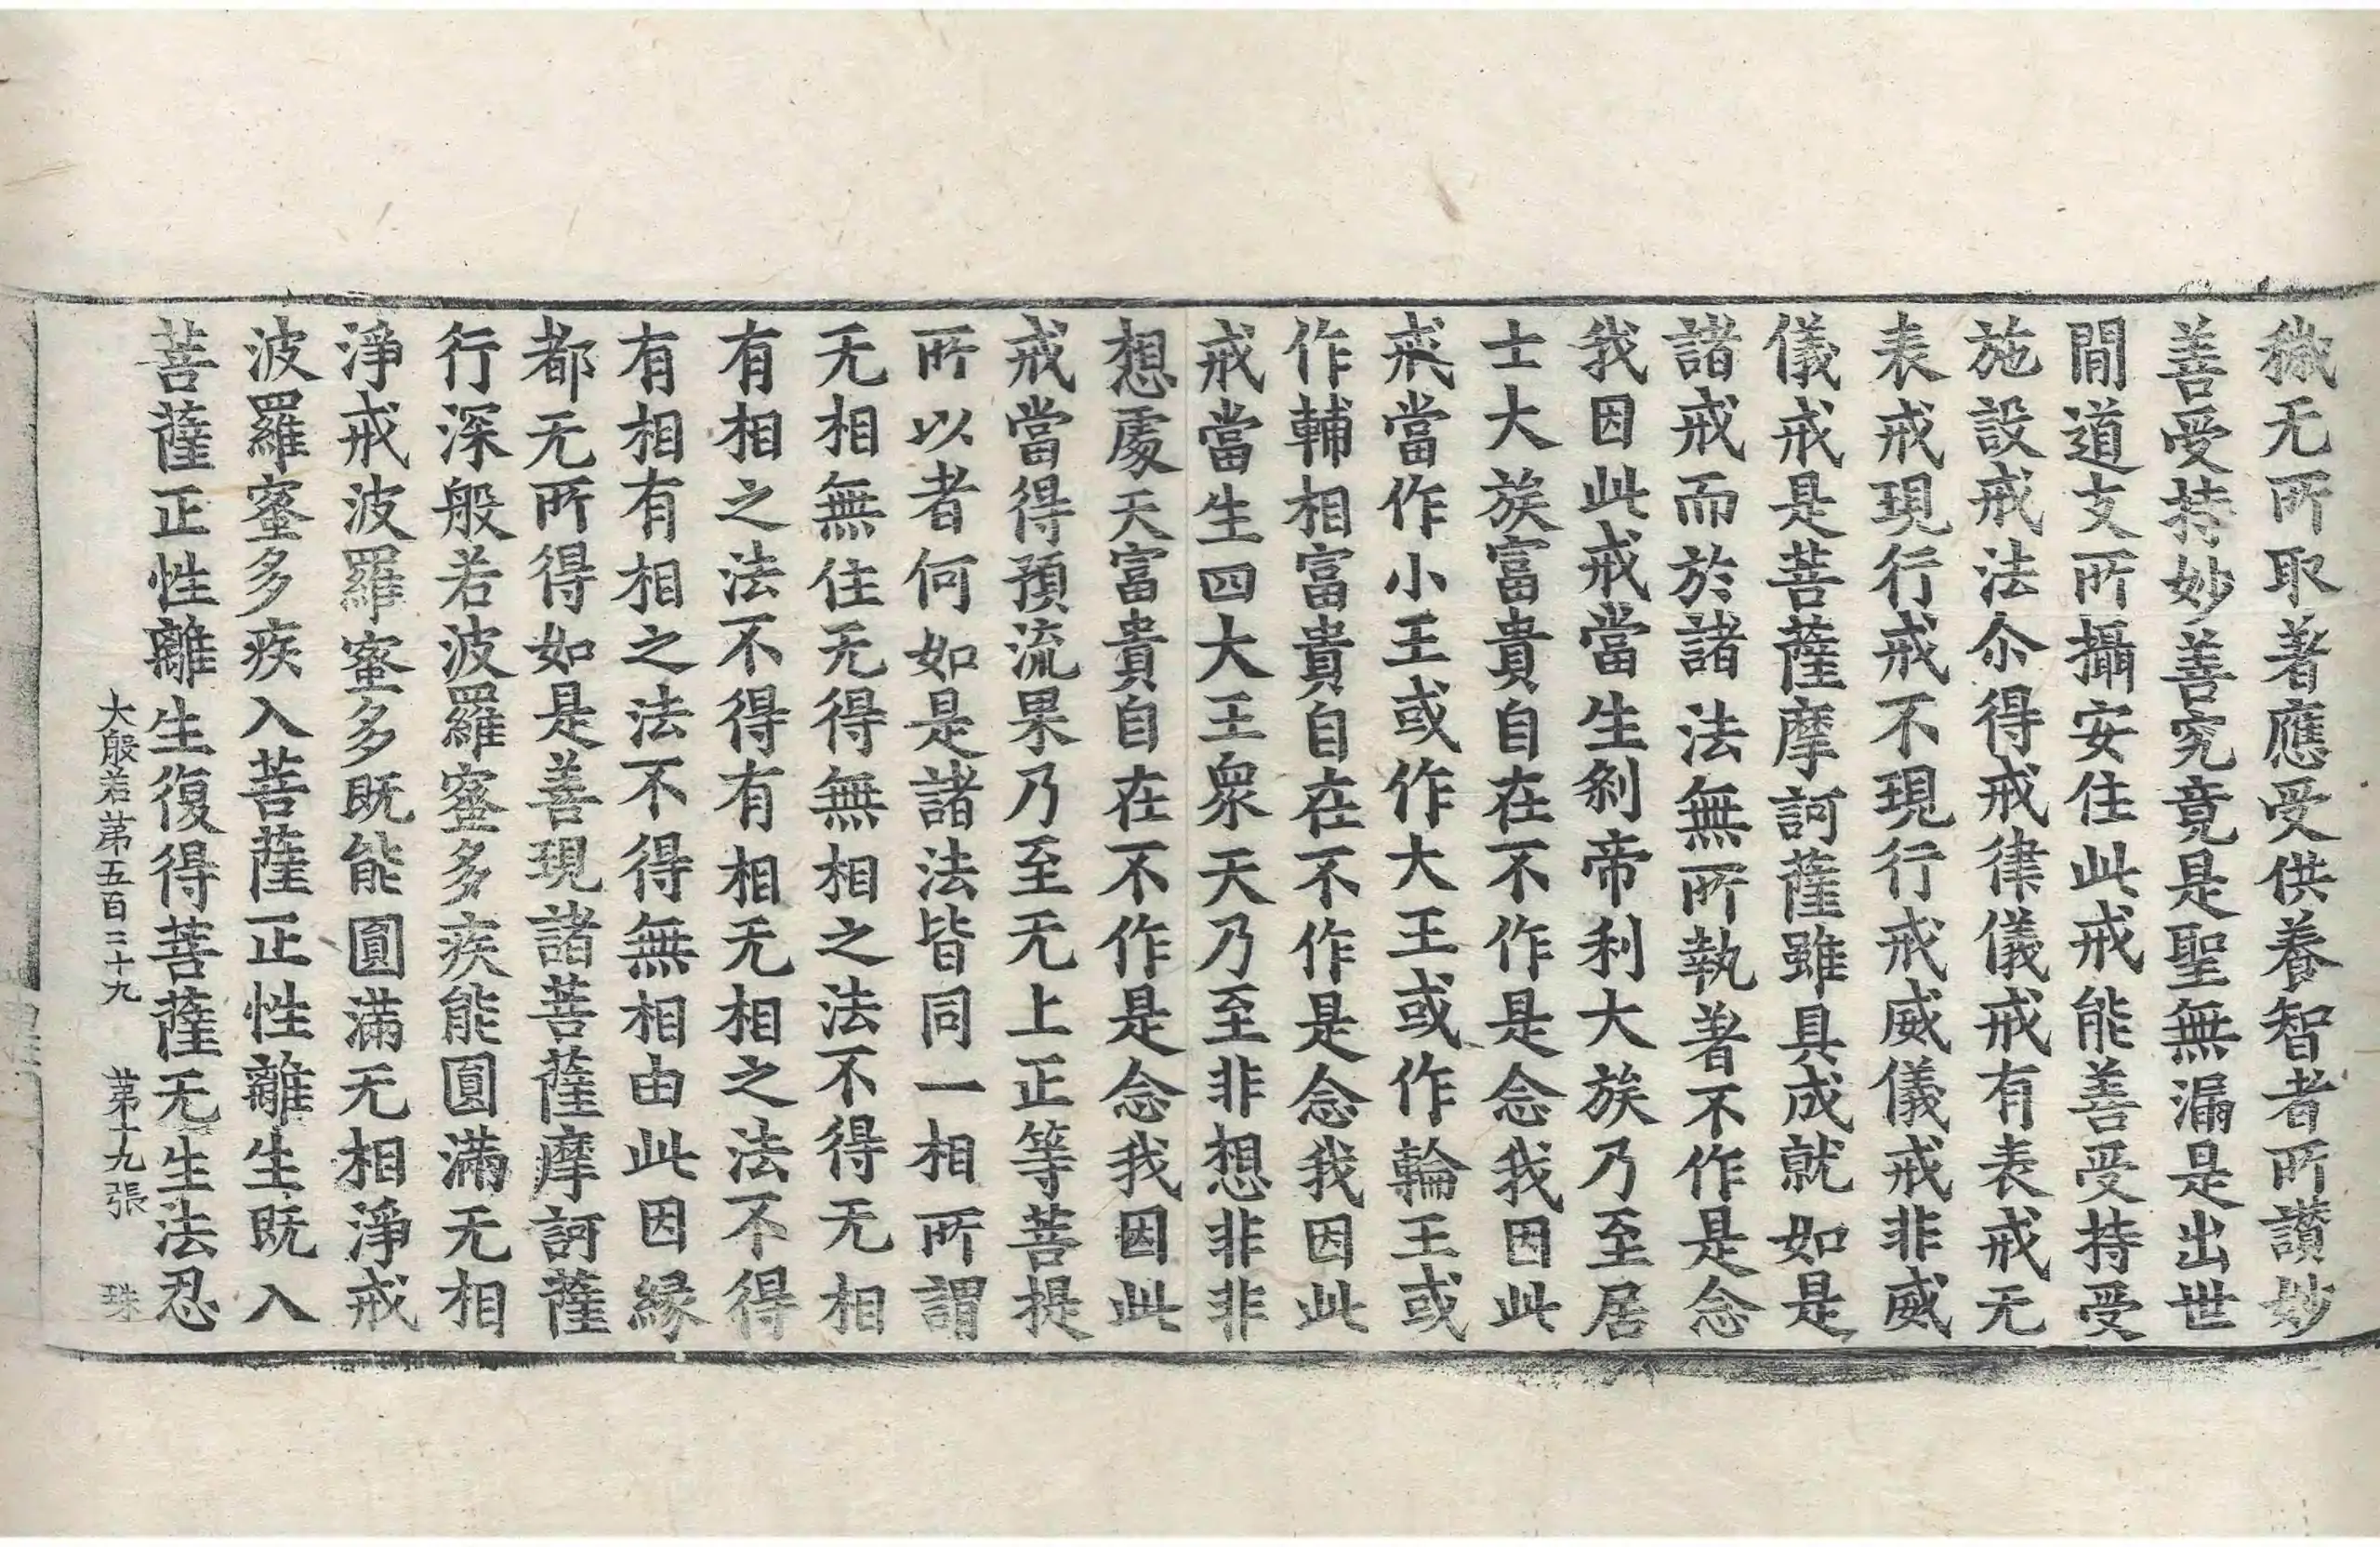 穢无所取著應受供養智者所讃妙
善受持妙善究竟是聖無漏是出世
間道支所攝安住此戒能善受持受
施設戒法尒得戒律儀戒有表戒无
表戒現行戒不現行戒威儀戒非威
儀戒是菩薩摩訶薩雖具成就如是
諸戒而於諸法無所執著不作是念
我因此戒當生剎帝利大族乃至居
士大族富貴自在不作是念我因此
戒當作小王或作大王或作輪王或
作輔相富貴自在不作是念我因此
戒當生四大王衆天乃至非想非非
想處天富貴自在不作是念我因此
戒當得預流果乃至无上正等菩提
所以者何如是諸法皆同一相所謂
无相無住无得無相之法不得无相
有相之法不得有相无相之法不得
有相有相之法不得無相由此因縁
都无所得如是善現諸菩薩摩訶薩
行深般若波羅蜜多疾能圓滿无相
淨戒波羅蜜多既能圓滿无相淨戒
波羅蜜多疾入菩薩正性離生既入
菩薩正性離生復得菩薩无生法忍
大般若第五百二十九 第十九張 珠